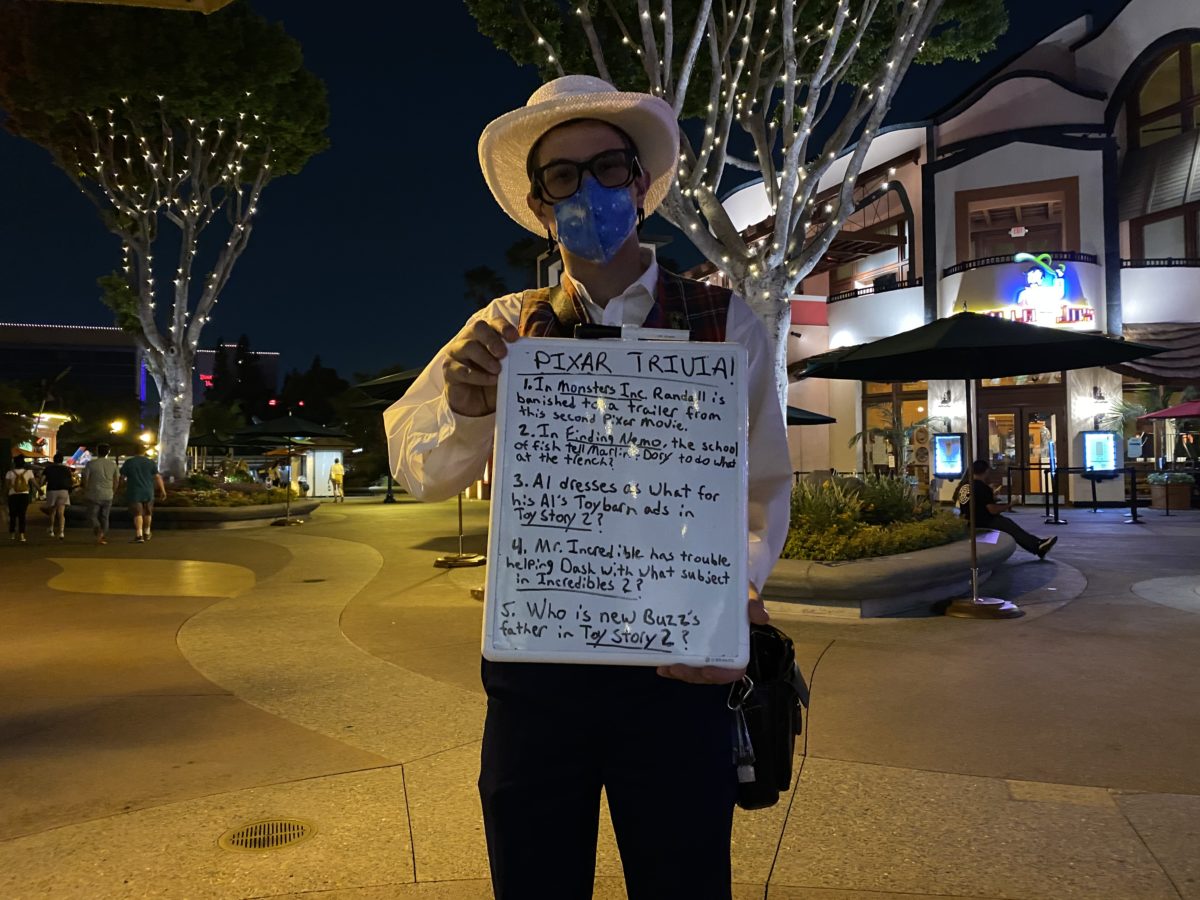 PIXAR TRIVIA!
1. In Monsters Inc. Randall is
banished to a trailer from
this second Pixar movie.
2. In Finding Nemo, the school
of fish tell Marlin & Dory to do what
at the trench?
3. Al dresses as what for
his Al's Toybarn ads in
Toy Story 2?
4. Mr. Incredible has trouble
helping Dash with what subject
in Incredibles 2?
5. Who is new Buzz's
father in Toy Story 2?
EXIT